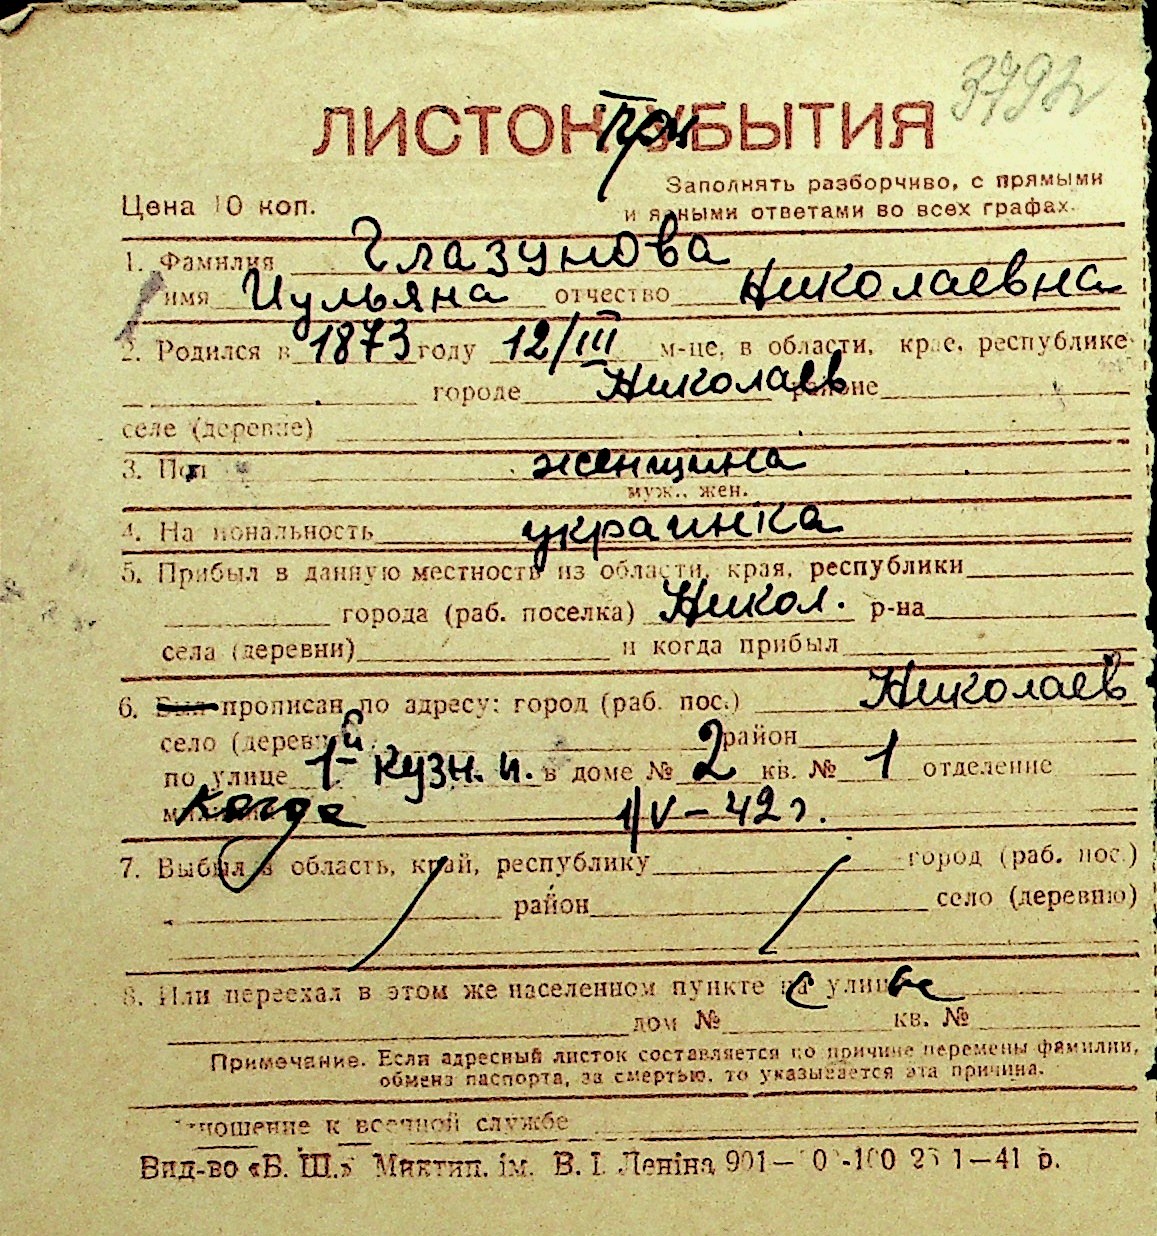 3792
ЛИСТОК ПриБЫТИЯ
Заполнять разборчиво, с прямыми
Цена 10 коп.
и ясными ответами во всех графах.
1. Фамилия Глазунова
имя Иульяна отчество Николаевна
2. Родился в 1873 году 12/III м-це, в области, крае, республике
городе Николаев районе
селе (деревне)
3. Пол женщина
муж., жен.
4. Национальность украинка
5. Прибыл в данную местность из области, края, республики
города (раб. поселка) Никол. р-на
села (деревни) и когда прибыл
6. Был прописан по адресу: город (раб. пос.) Николаев
село (деревня) район
по улице 1-й Кузн. и. в доме № 2 кв. № 1 отделение
когда 1/V-42 г.
7. Выбыл в область, край, республику город (раб. пос.)
район село (деревню)
8. Или переехал в этом же населенном пункте с улицы
дом № кв. №
Примечание. Если адресный листок составляется по причине перемены фамилии,
обмена паспорта, за смертью, то указывается эта причина.
Отношение к военной службе
Вид-во «Б. Ш.» Миктип. ім. В. І. Леніна 901— 0 -100 25 1—41 р.